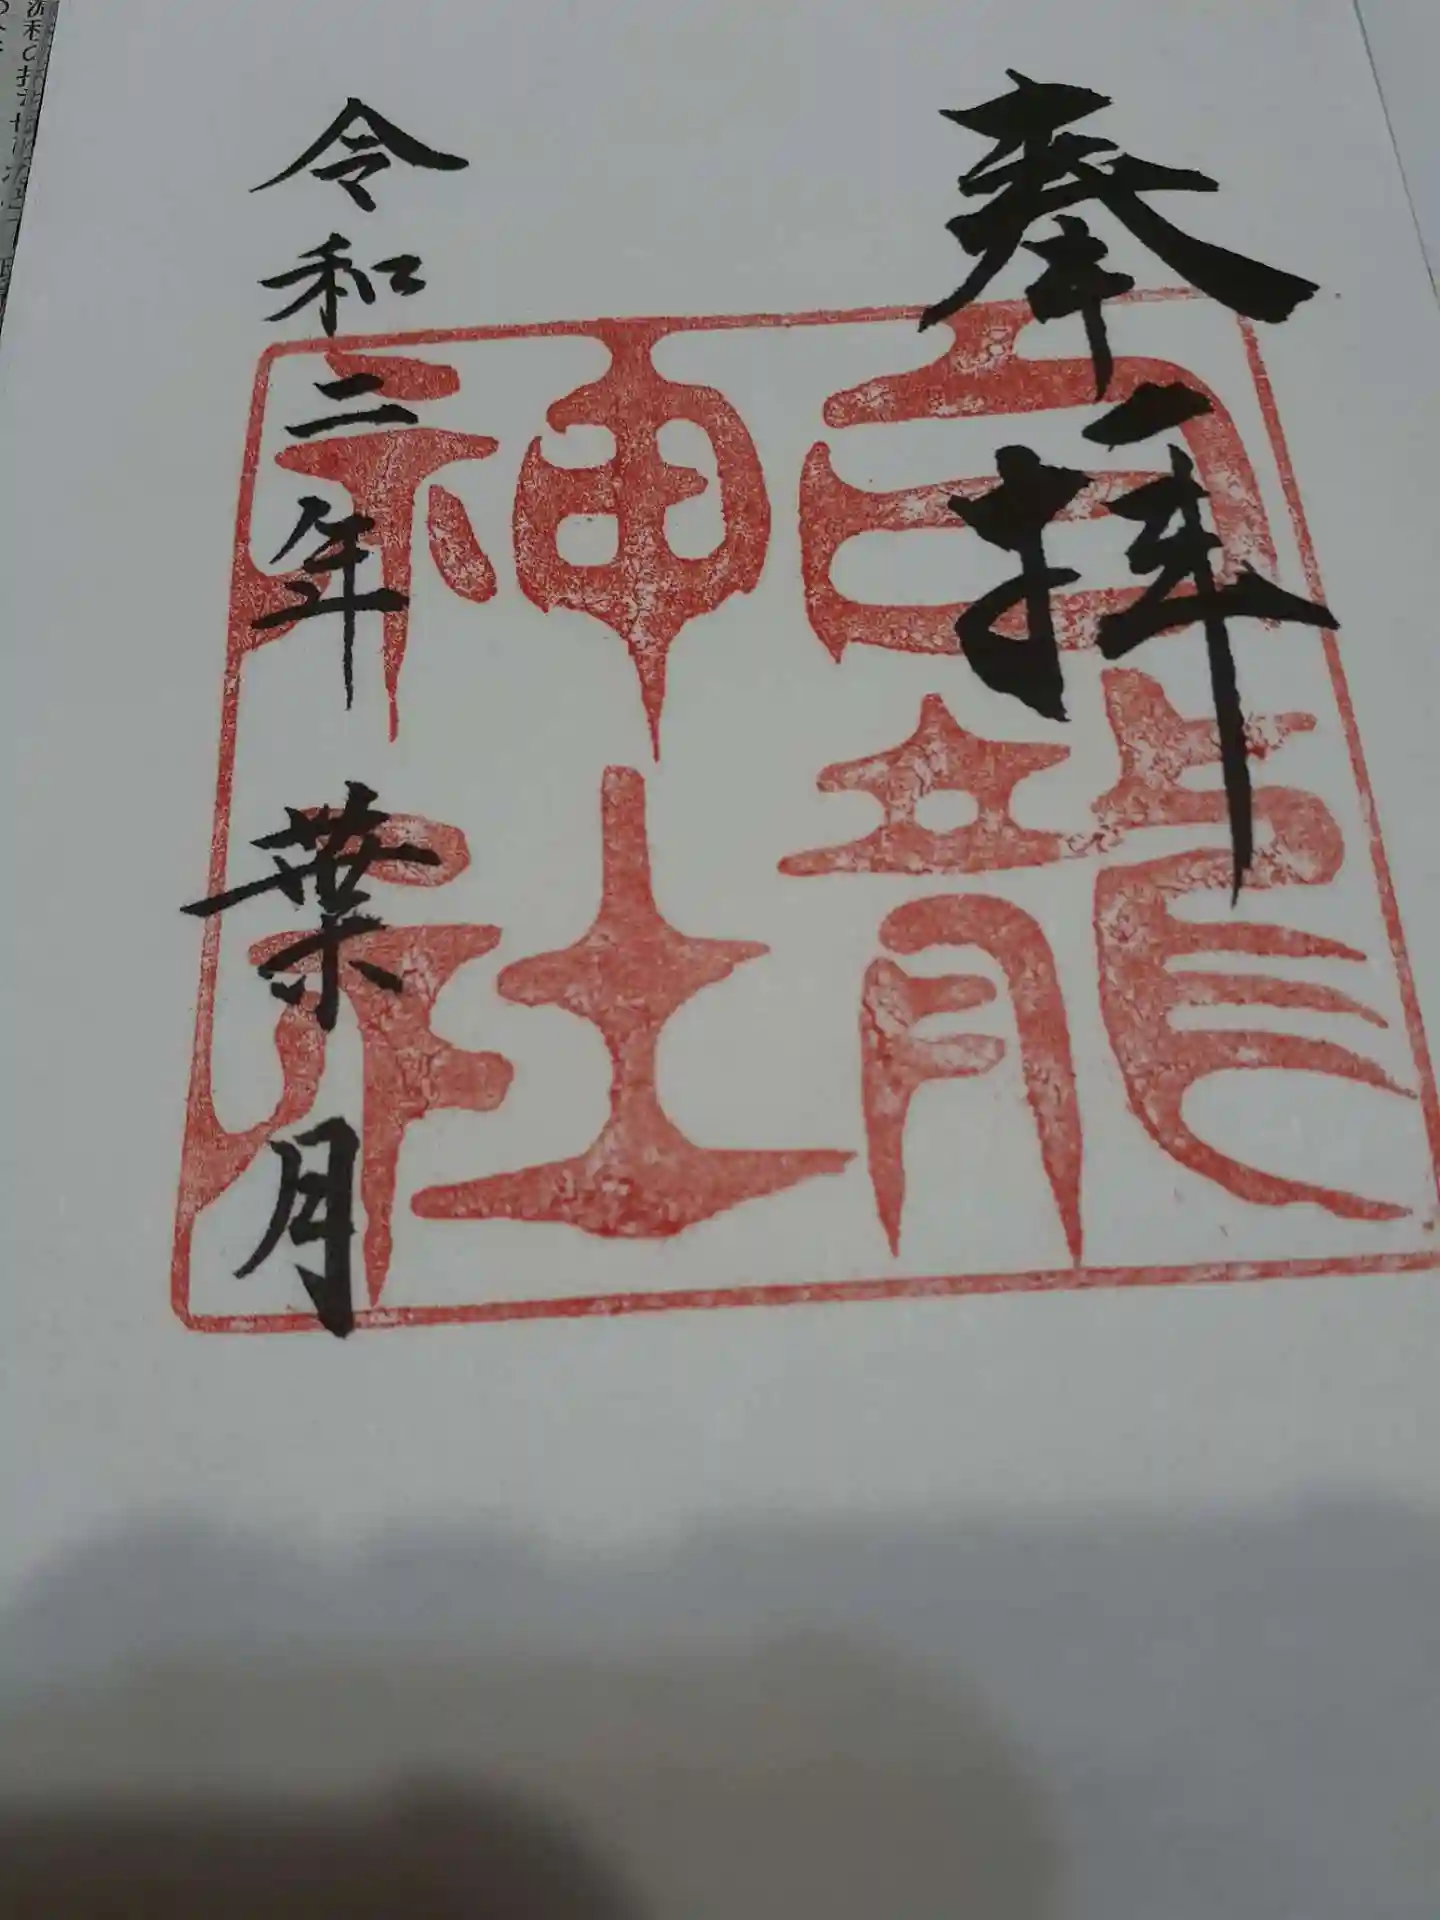 奉拝
白龍
神社
令和二年 葉月